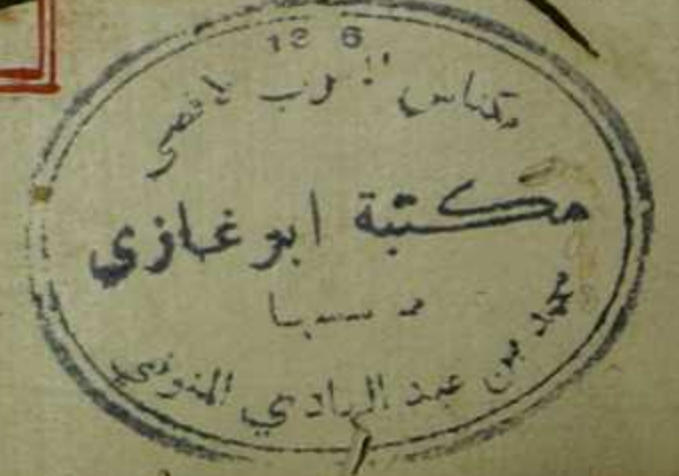 13 6
مكناس المغرب الاقصى
مكتبة ابو غازي
محمد بن عبد الهادي المنوني